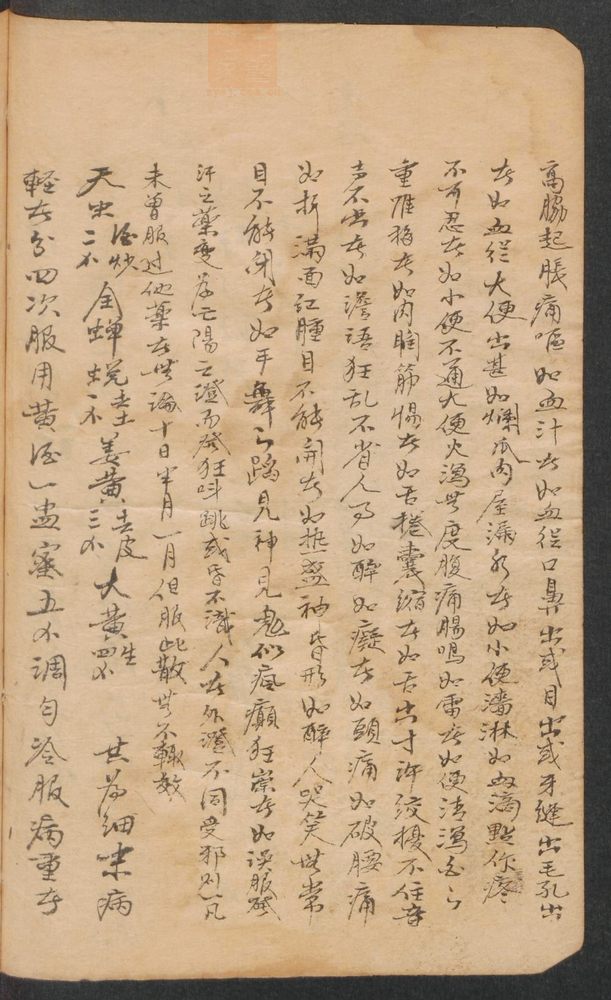 高脇起脹痛嘔如血汁者如血從口鼻出或目出或牙縫出毛孔出
者如血從大便出甚如爛瓜肉屋漏水者如小便瀒淋如血滴點作疼
不可忍者如小便不通大便火瀉無度腹痛腸鳴如雷者如便清瀉白之
重難移者如肉瞤筋惕者如舌捲囊縮者如舌出寸許絞擾不住音
声不出者如譫語狂乱不省人事如醉如癡者如頭痛如破腰痛
如折滿面紅腫目不能開者如熱盛神昏形如醉人哭笑無常
目不能閉者如手舞足蹈見神見鬼似瘋癲狂祟者如誤服發
汗之藥變為亡陽之證而發狂叫跳或昏不識人者外證不同受邪則一凡
未曾服过他藥者無論十日半月一月但服此散無不輒效
天虫酒炒二个 全蟬蛻去土一个 姜黃去皮三个 大黃生四个 共為細末病
輕者分四次服用黃酒一盅蜜五个調勻冷服病重者